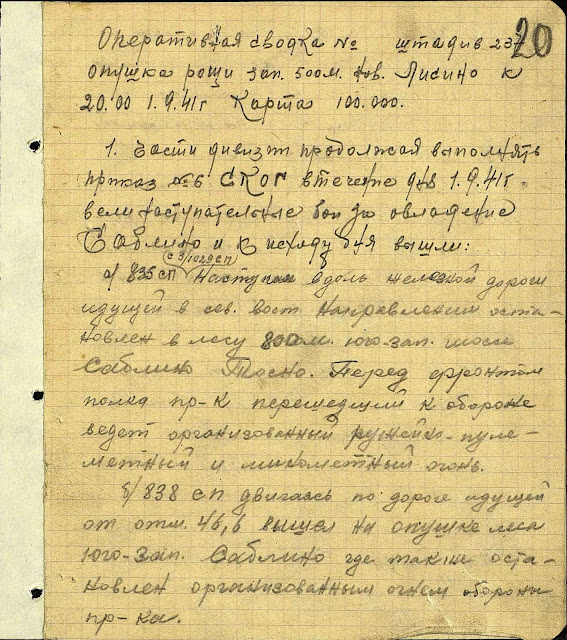 20
Оперативная сводка № штадив 237
опушка рощи зап. 500м. Лисино к
20.00 1.9.41г Карта 100.000.
1. Части дивизии продолжая выполнять
приказ №6 СКОГ в течение дня 1.9.41г.
вели наступательные бои за овладение
Саблино и к исходу дня вышли:
с 3/1029 сп
а/ 835 сп Наступая вдоль железной дороги
идущей в сев. вост Направлении оста-
новлен в лесу 800м. юго-зап. шоссе
Саблино Тосно. Перед фронтом
полка пр-к перешедший к обороне
ведет организованный ружейно-пуле-
метный и минометный огонь.
б/ 838 сп двигаясь по дороге идущей
от отм. 46,6 вышел на опушке леса
юго-зап. Саблино где также оста-
новлен организованным огнем обороны
пр-ка.